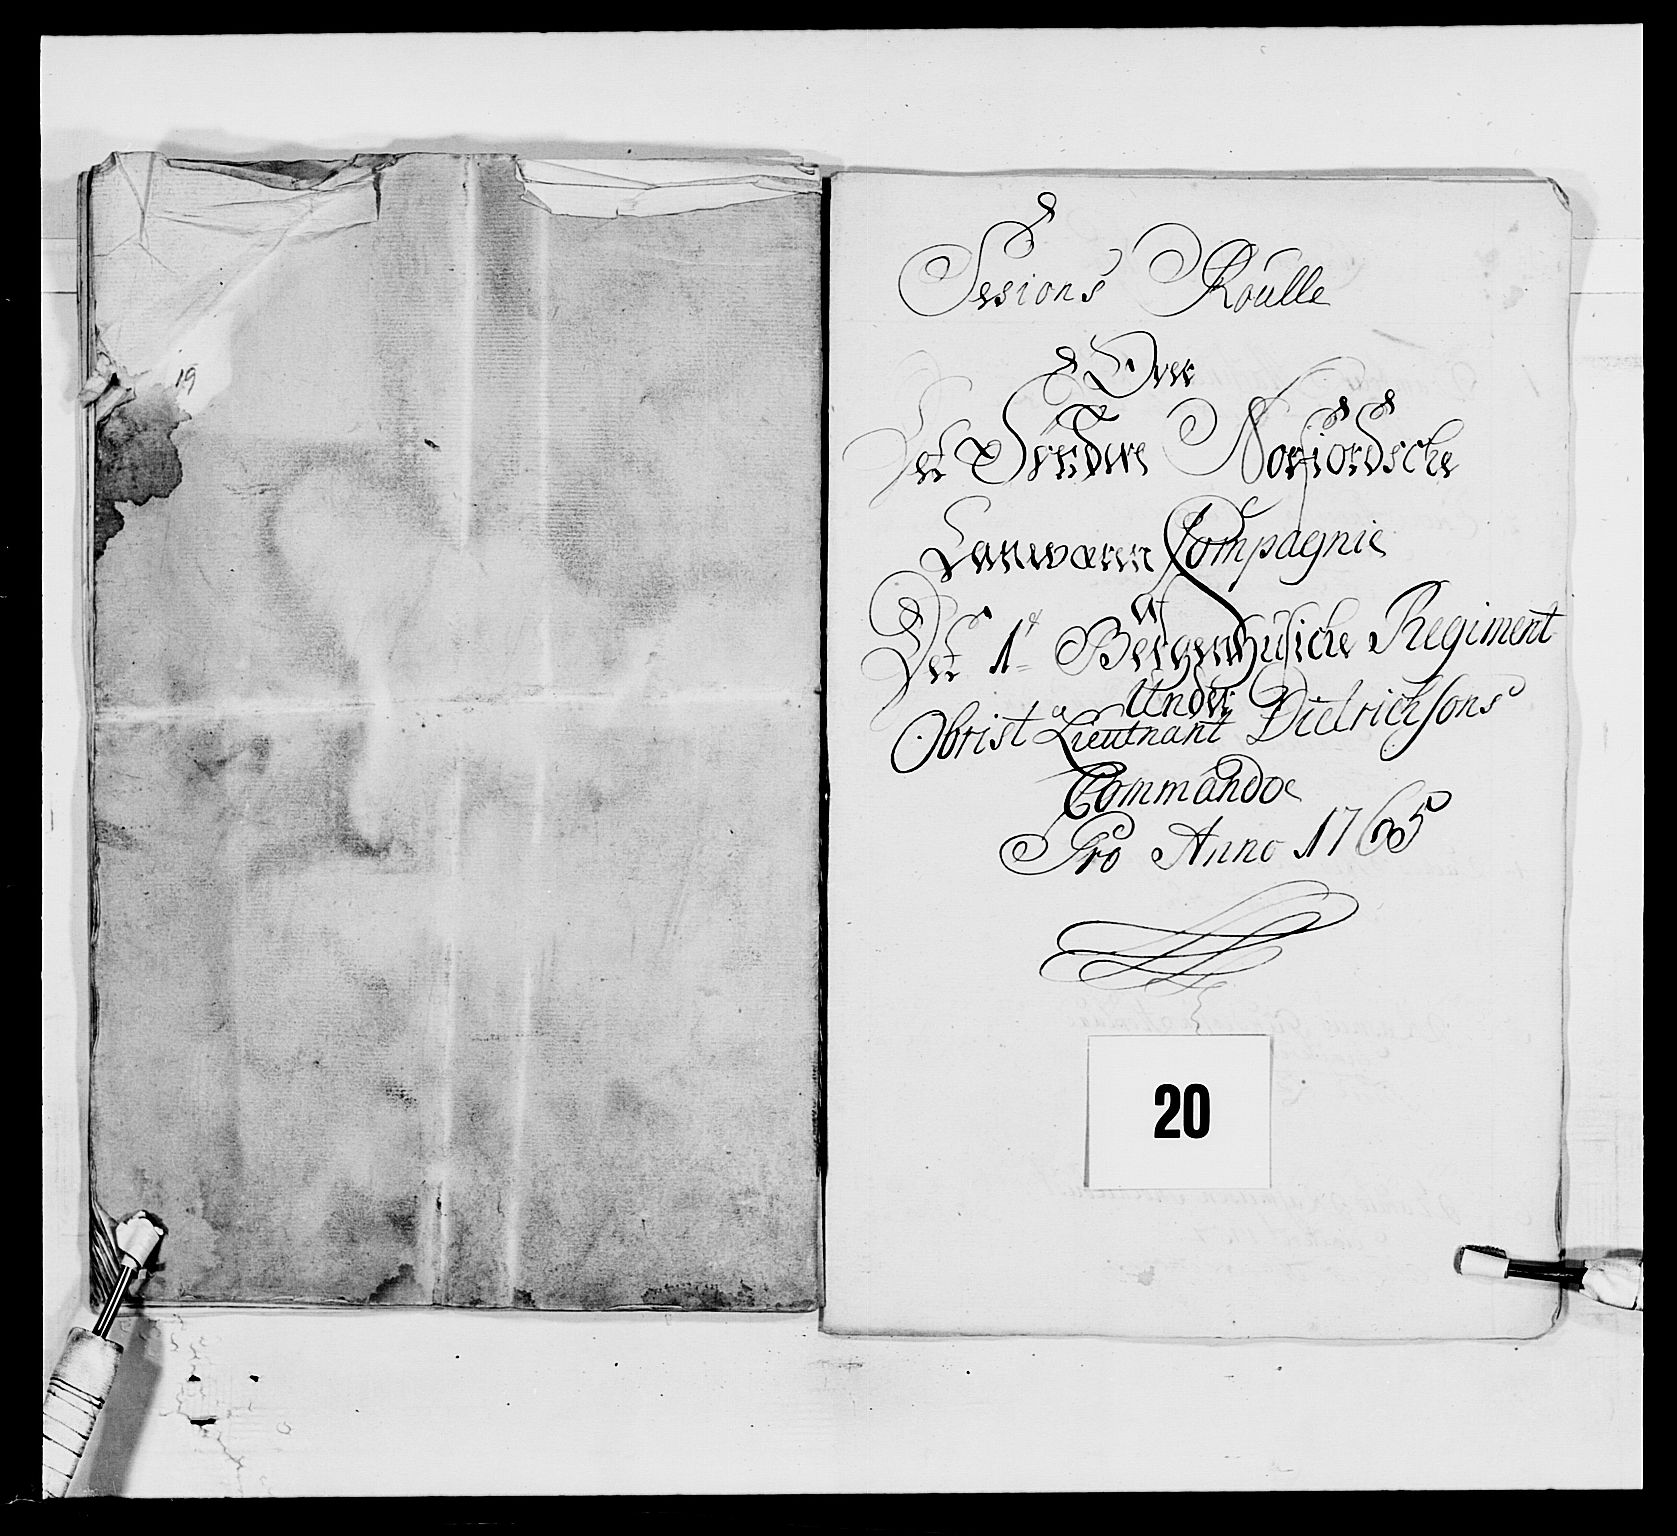 19
Sesions Roulle
Over
Det Syndre Norfiordsche
Lanværn Compagnie
af
Det 1te Bergenhusiche Regiment
Under
Obrist Lieutnant Dietrichsons
Commandoe
Pro Anno 1765
20